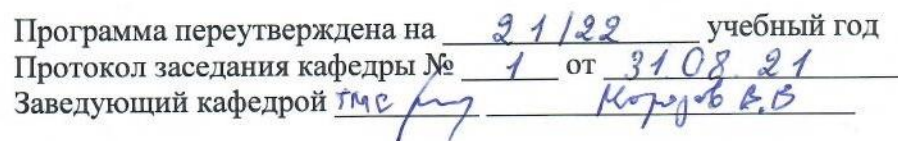 Программа переутверждена на 21/22 учебный год
Протокол заседания кафедры № 1 от 31 08 21
Заведующий кафедрой ТМС В.В